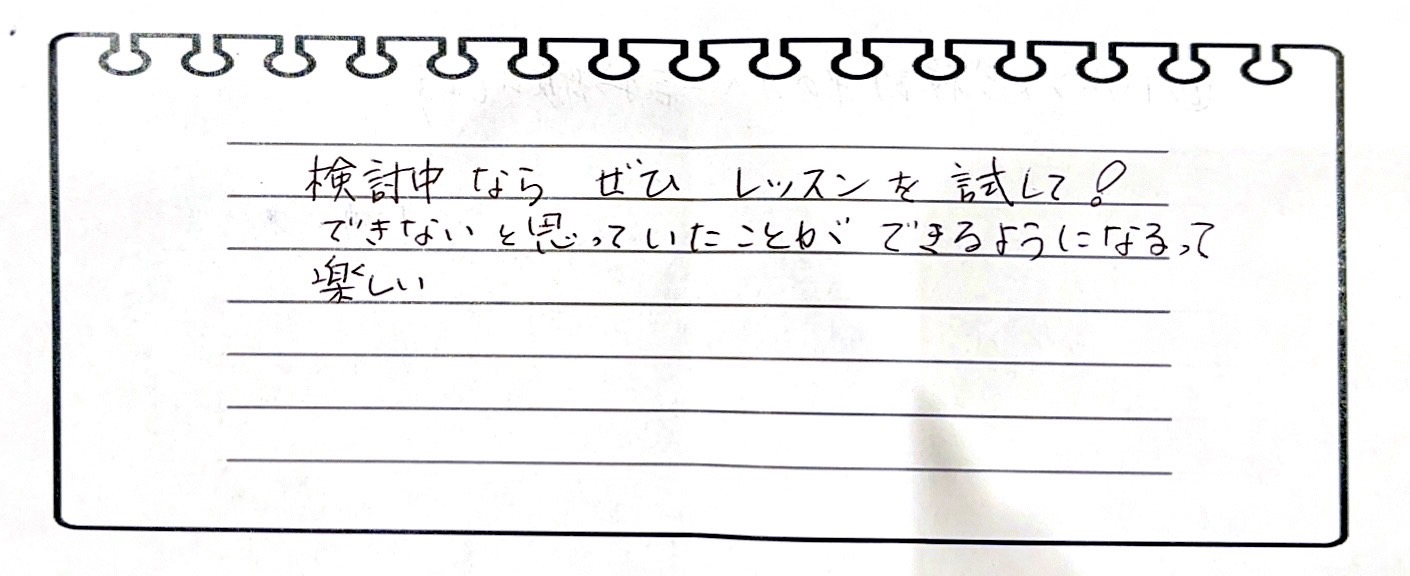 検討中なら ぜひ レッスンを 試して!
できないと思っていたことが できるようになるって
楽しい